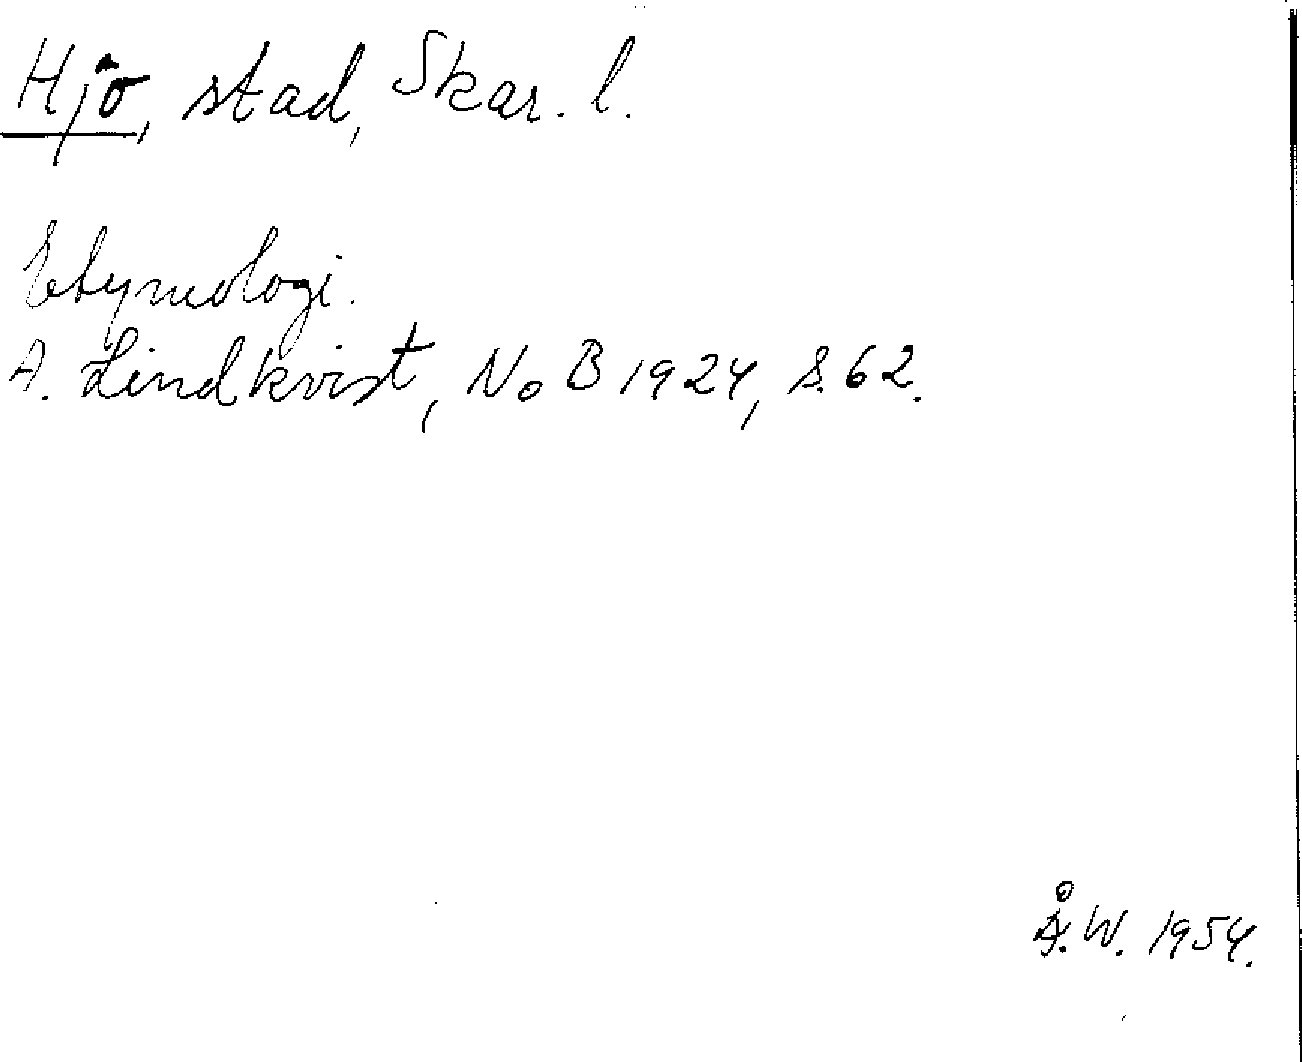 Hjo, stad, Skar. l.
Etymologi.
A. Lindkvist, NoB 1924, s. 62.
Å. W. 1954.